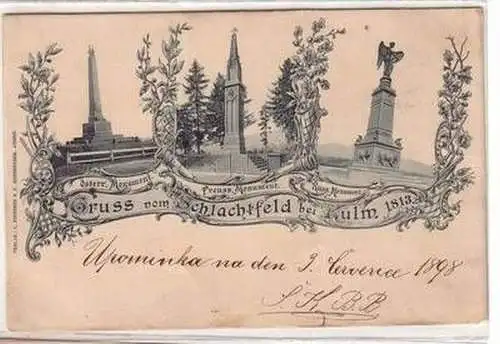 Österr. Monument.
Preuss. Monument.
Russ. Monument.
Gruss vom Schlachtfeld bei Kulm 1813.
Upomínka na den 3. Července 1898